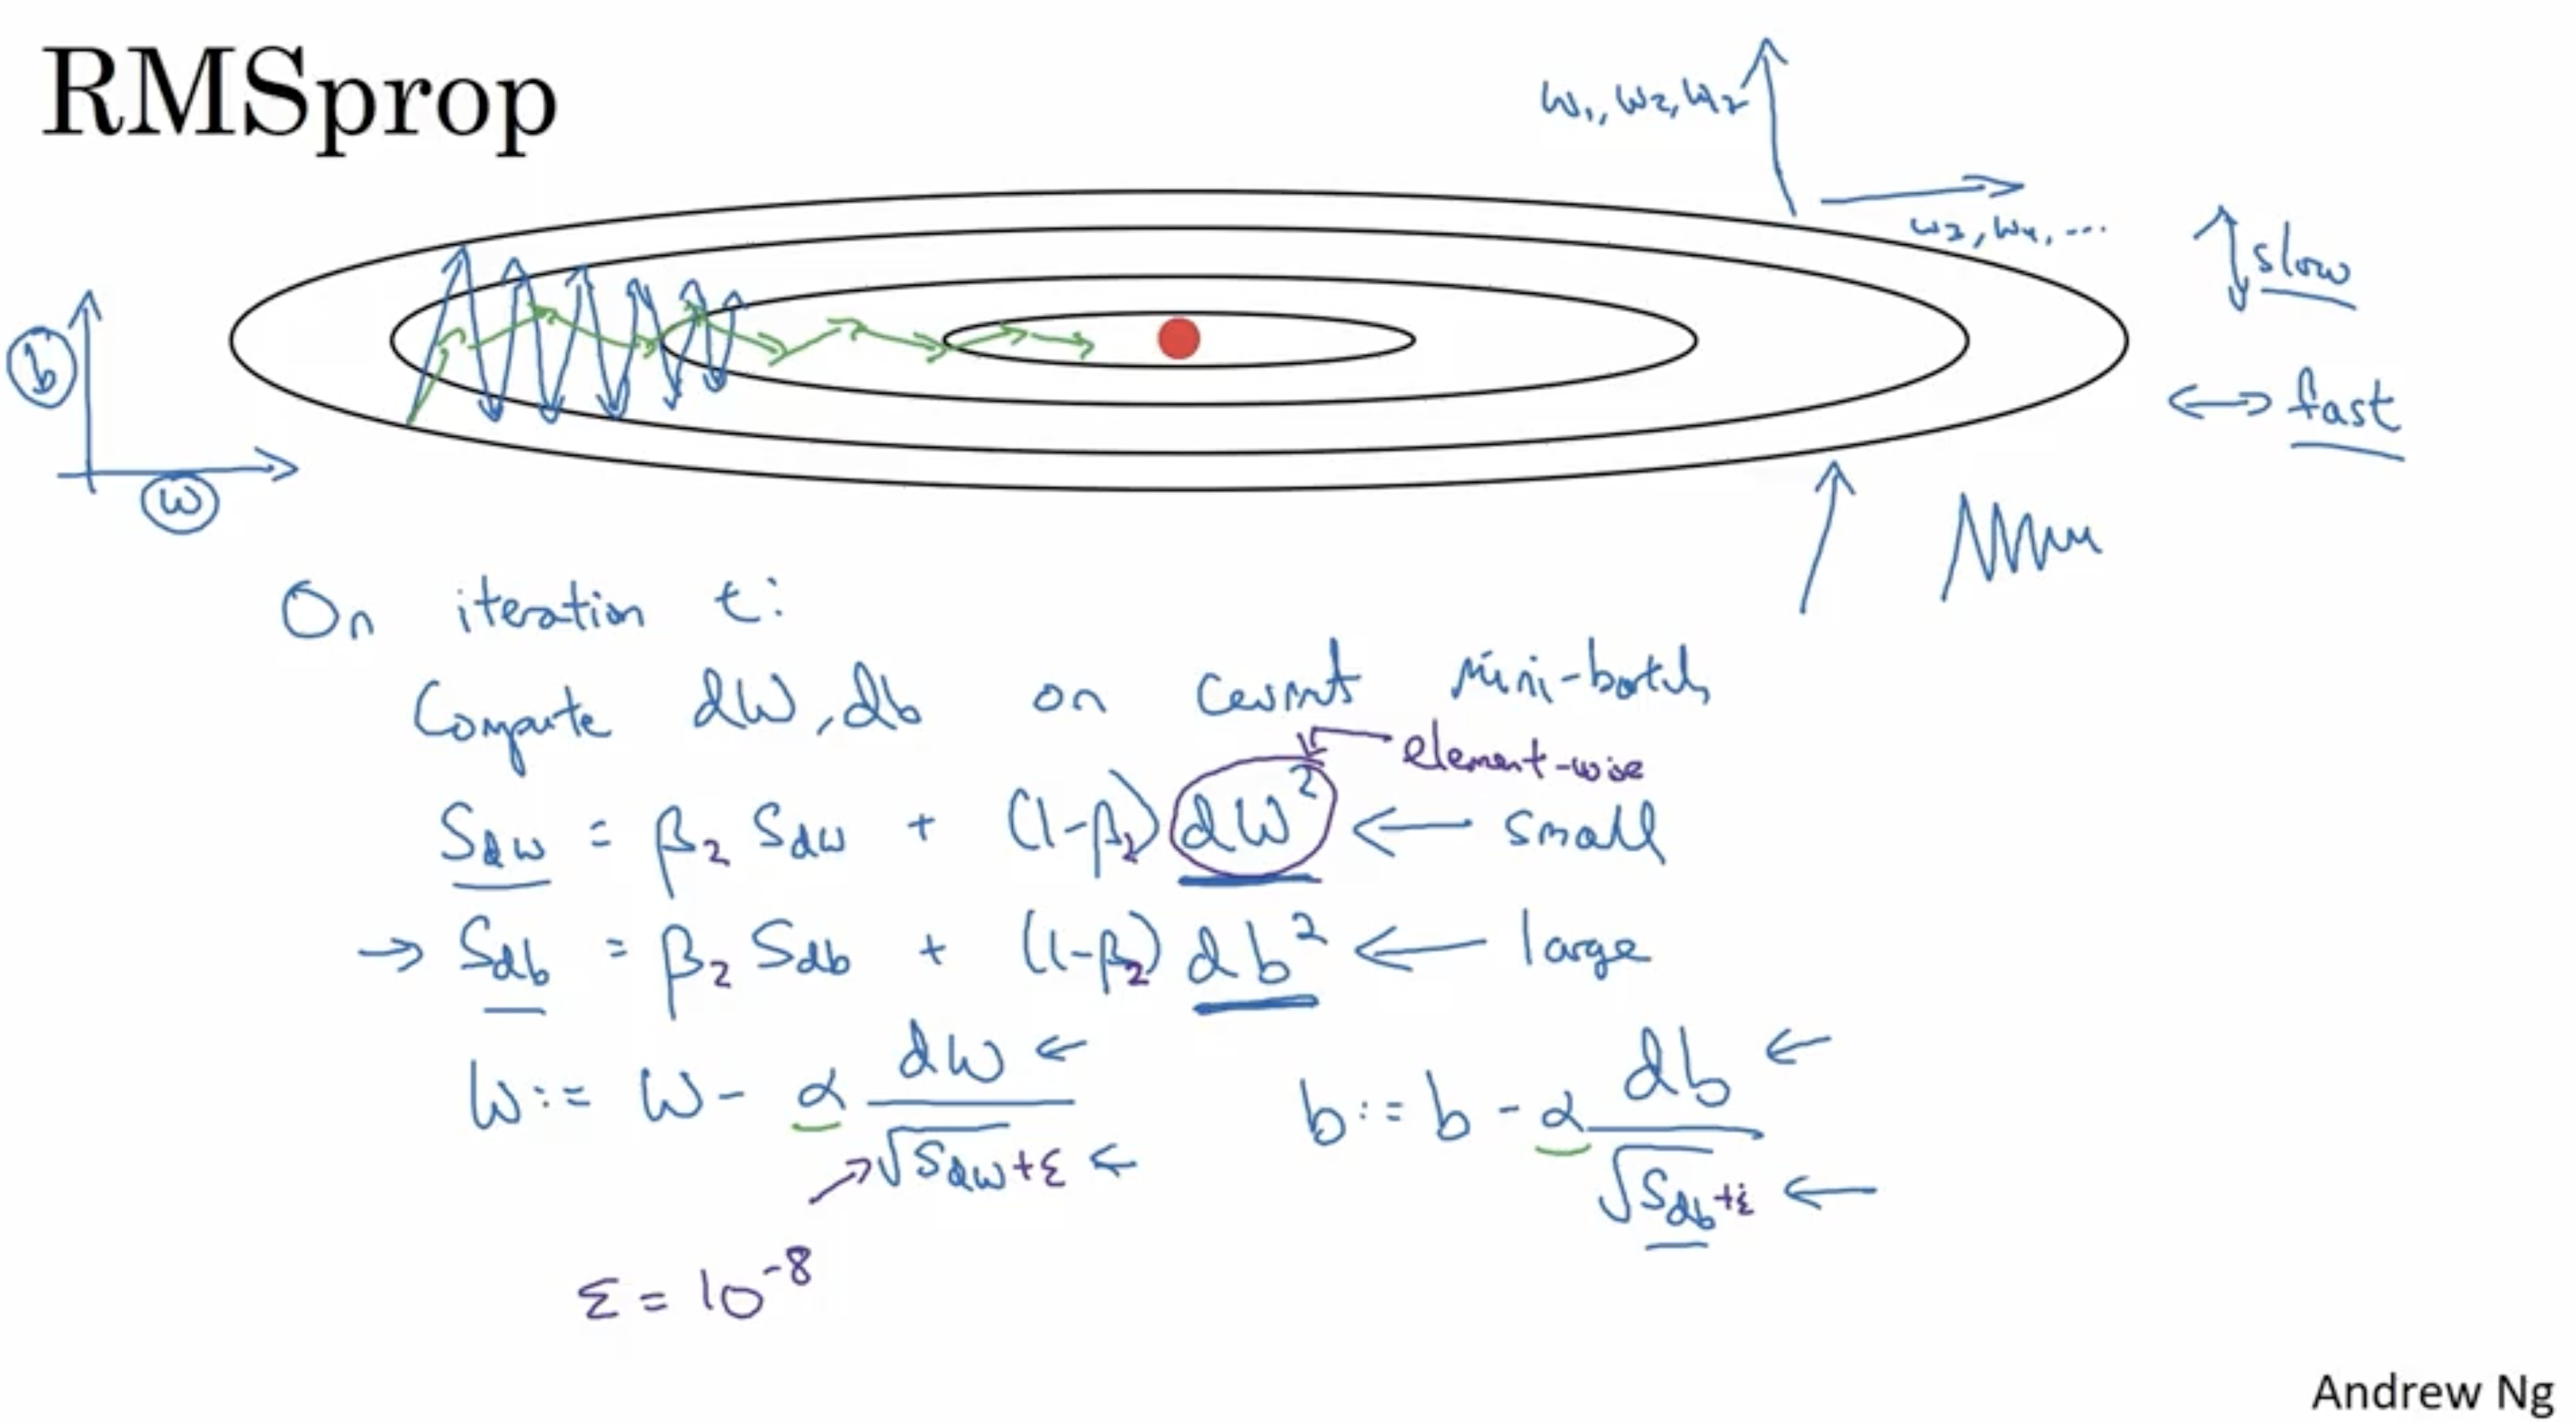 RMSprop
w₁, w₂, w₇
w₃, w₄, ...
slow
b
fast
w
On iteration t:
Compute dW, db on current mini-batch
element-wise
S_dw = β₂ S_dw + (1-β₂) dW² ← small
→ S_db = β₂ S_db + (1-β₂) db² ← large
W := W - α dW / √S_dw + ε ← b := b - α db / √S_db + ε ←
ε = 10⁻⁸
Andrew Ng